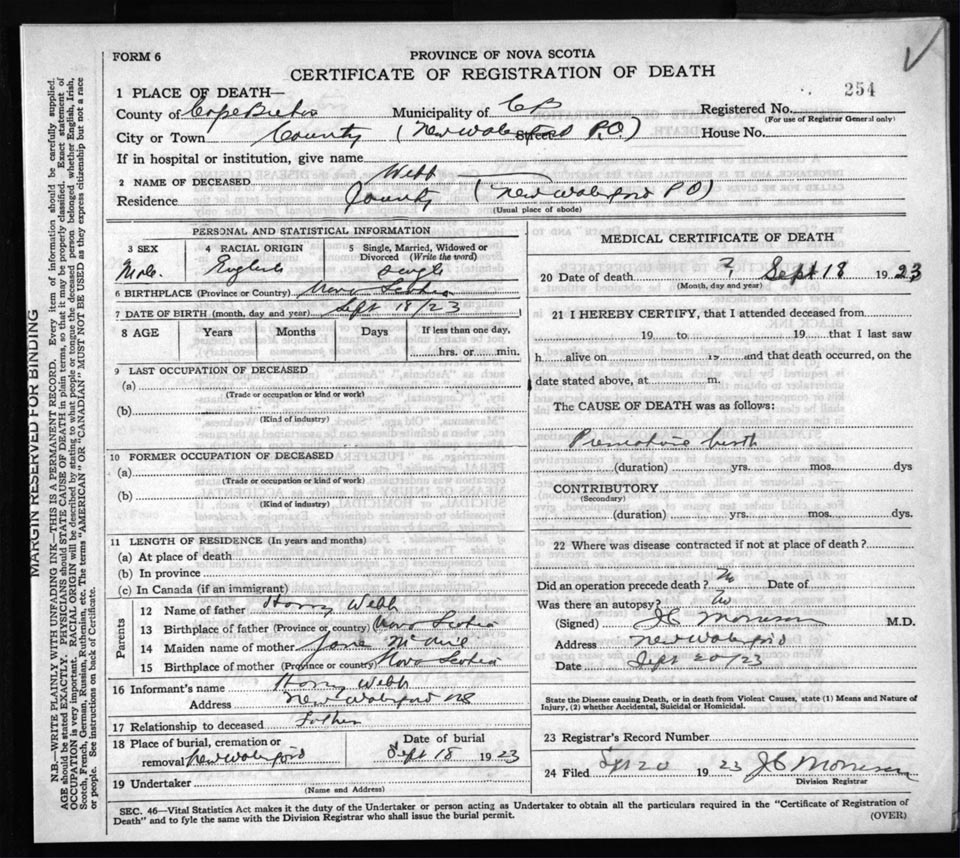 FORM 6
PROVINCE OF NOVA SCOTIA
CERTIFICATE OF REGISTRATION OF DEATH
254
1 PLACE OF DEATH—
County of Cape Breton Municipality of CB Registered No.
(For use of Registrar General only)
City or Town County (New Waterford P.O.) Street House No.
If in hospital or institution, give name
2 NAME OF DECEASED Webb
Residence County (New Waterford P O)
(Usual place of abode)
PERSONAL AND STATISTICAL INFORMATION
3 SEX 4 RACIAL ORIGIN 5 Single, Married, Widowed or Divorced (Write the word)
Male. English Single
6 BIRTHPLACE (Province or Country) Nova Scotia
7 DATE OF BIRTH (month, day and year) Sept 18/23
8 AGE Years Months Days If less than one day,
hrs. or min.
9 LAST OCCUPATION OF DECEASED
(a)
(Trade or occupation or kind or work)
(b)
(Kind of industry)
10 FORMER OCCUPATION OF DECEASED
(a)
(Trade or occupation or kind or work)
(b)
(Kind of industry)
11 LENGTH OF RESIDENCE (In years and months)
(a) At place of death
(b) In province
(c) In Canada (if an immigrant)
Parents
12 Name of father Harry Webb
13 Birthplace of father (Province or country) Nova Scotia
14 Maiden name of mother Jane
15 Birthplace of mother (Province or country) Nova Scotia
16 Informant's name Harry Webb
Address New Waterford NS
17 Relationship to deceased Father
18 Place of burial, cremation or removal New Waterford Date of burial Sept 18 1923
19 Undertaker
(Name and Address)
MEDICAL CERTIFICATE OF DEATH
20 Date of death ? Sept 18 1923
(Month, day and year)
21 I HEREBY CERTIFY, that I attended deceased from
19 to 19 that I last saw
h alive on 19 and that death occurred, on the
date stated above, at m.
The CAUSE OF DEATH was as follows:
Premature birth
(duration) yrs. mos. dys
CONTRIBUTORY
(Secondary)
(duration) yrs. mos. dys.
22 Where was disease contracted if not at place of death?
Did an operation precede death? No Date of
Was there an autopsy? No
(Signed) JC Morrison M.D.
Address New Waterford
Date Sept 20/23
State the Disease causing Death, or in death from Violent Causes, state (1) Means and Nature of
Injury, (2) whether Accidental, Suicidal or Homicidal.
23 Registrar's Record Number
24 Filed Sept 20 1923 JC Morrison
Division Registrar
SEC. 46—Vital Statistics Act makes it the duty of the Undertaker or person acting as Undertaker to obtain all the particulars required in the "Certificate of Registration of
Death" and to fyle the same with the Division Registrar who shall issue the burial permit.
(OVER)
MARGIN RESERVED FOR BINDING
N.B.—WRITE PLAINLY WITH UNFADING INK—THIS IS A PERMANENT RECORD. Every item of information should be carefully supplied.
AGE should be stated EXACTLY. PHYSICIANS should STATE CAUSE OF DEATH in plain terms, so that it may be properly classified. Exact statement of
OCCUPATION is very important. RACIAL ORIGIN will be described by stating to what people or tongue the deceased person belonged whether English, Irish,
Scotch, French, German, Russian, Ruthenian, etc. The terms "AMERICAN" OR "CANADIAN" MUST NOT BE USED as they express citizenship but not a race
or people. See instructions on back of Certificate.